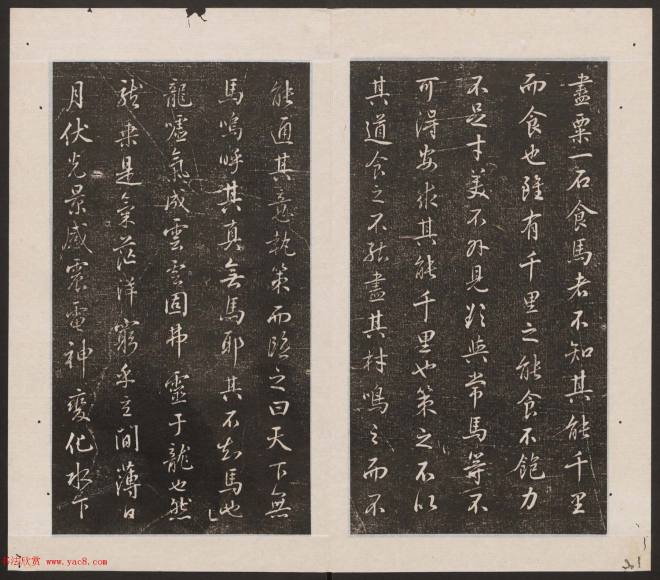 盡粟一石食馬者不知其能千里
而食也雖有千里之能食不飽力
不足才美不外見欲與常馬等不
可得安求其能千里也策之不以
其道食之不能盡其材鳴之而不
能通其意執策而臨之曰天下無
馬嗚呼其真無馬耶其不知馬也
龍噓氣成雲雲固弗靈于龍也然
龍乘是氣茫洋窮乎玄間薄日
月伏光景感震電神變化水下
书法欣赏 www.yac8.com